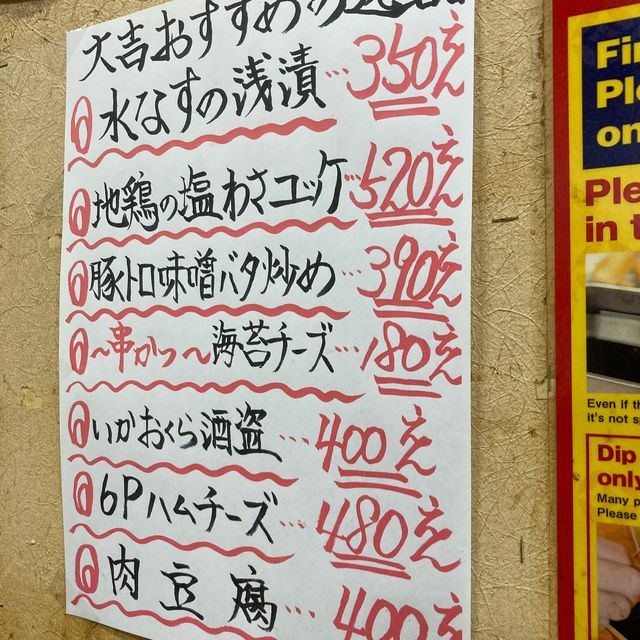 大吉おすすめの逸品
水なすの浅漬…350え
地鶏の塩わさユッケ…520え
豚トロ味噌バタ炒め…390え
〜串かつ〜海苔チーズ…180え
いかおくら酒盗…400え
6Pハムチーズ…480え
肉豆腐…400え
Ple
on
Ple
in t
Even if th
it's not s
Dip
only
Many p
Please